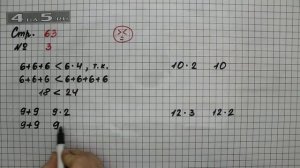 4GDZ.RU
Стр. 63
№ 3
6+6+6 < 6·4, т.к.
6+6+6 < 6+6+6+6
18 < 24
9+9 9·2
9+9 9
10·2 10
12·3 12·2